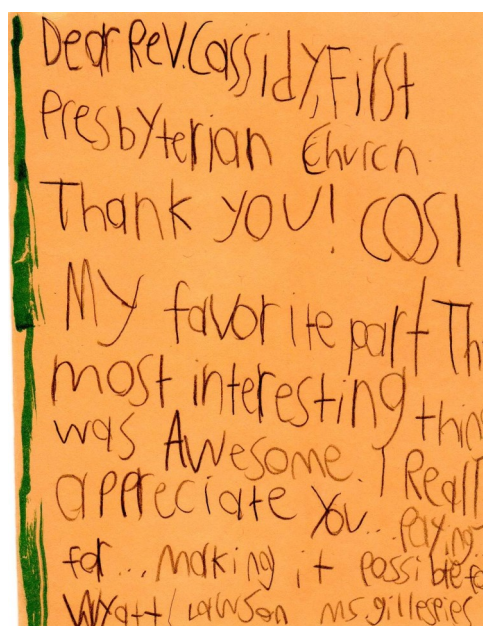 Dear Rev. Cassidy, First
Presbyterian Church
Thank you! COSI
My favorite part Th
most interesting thin
was Awesome. I Reall
appreciate you... paying
for... making it possible fo
Wyatt Lawson ms. gillespies